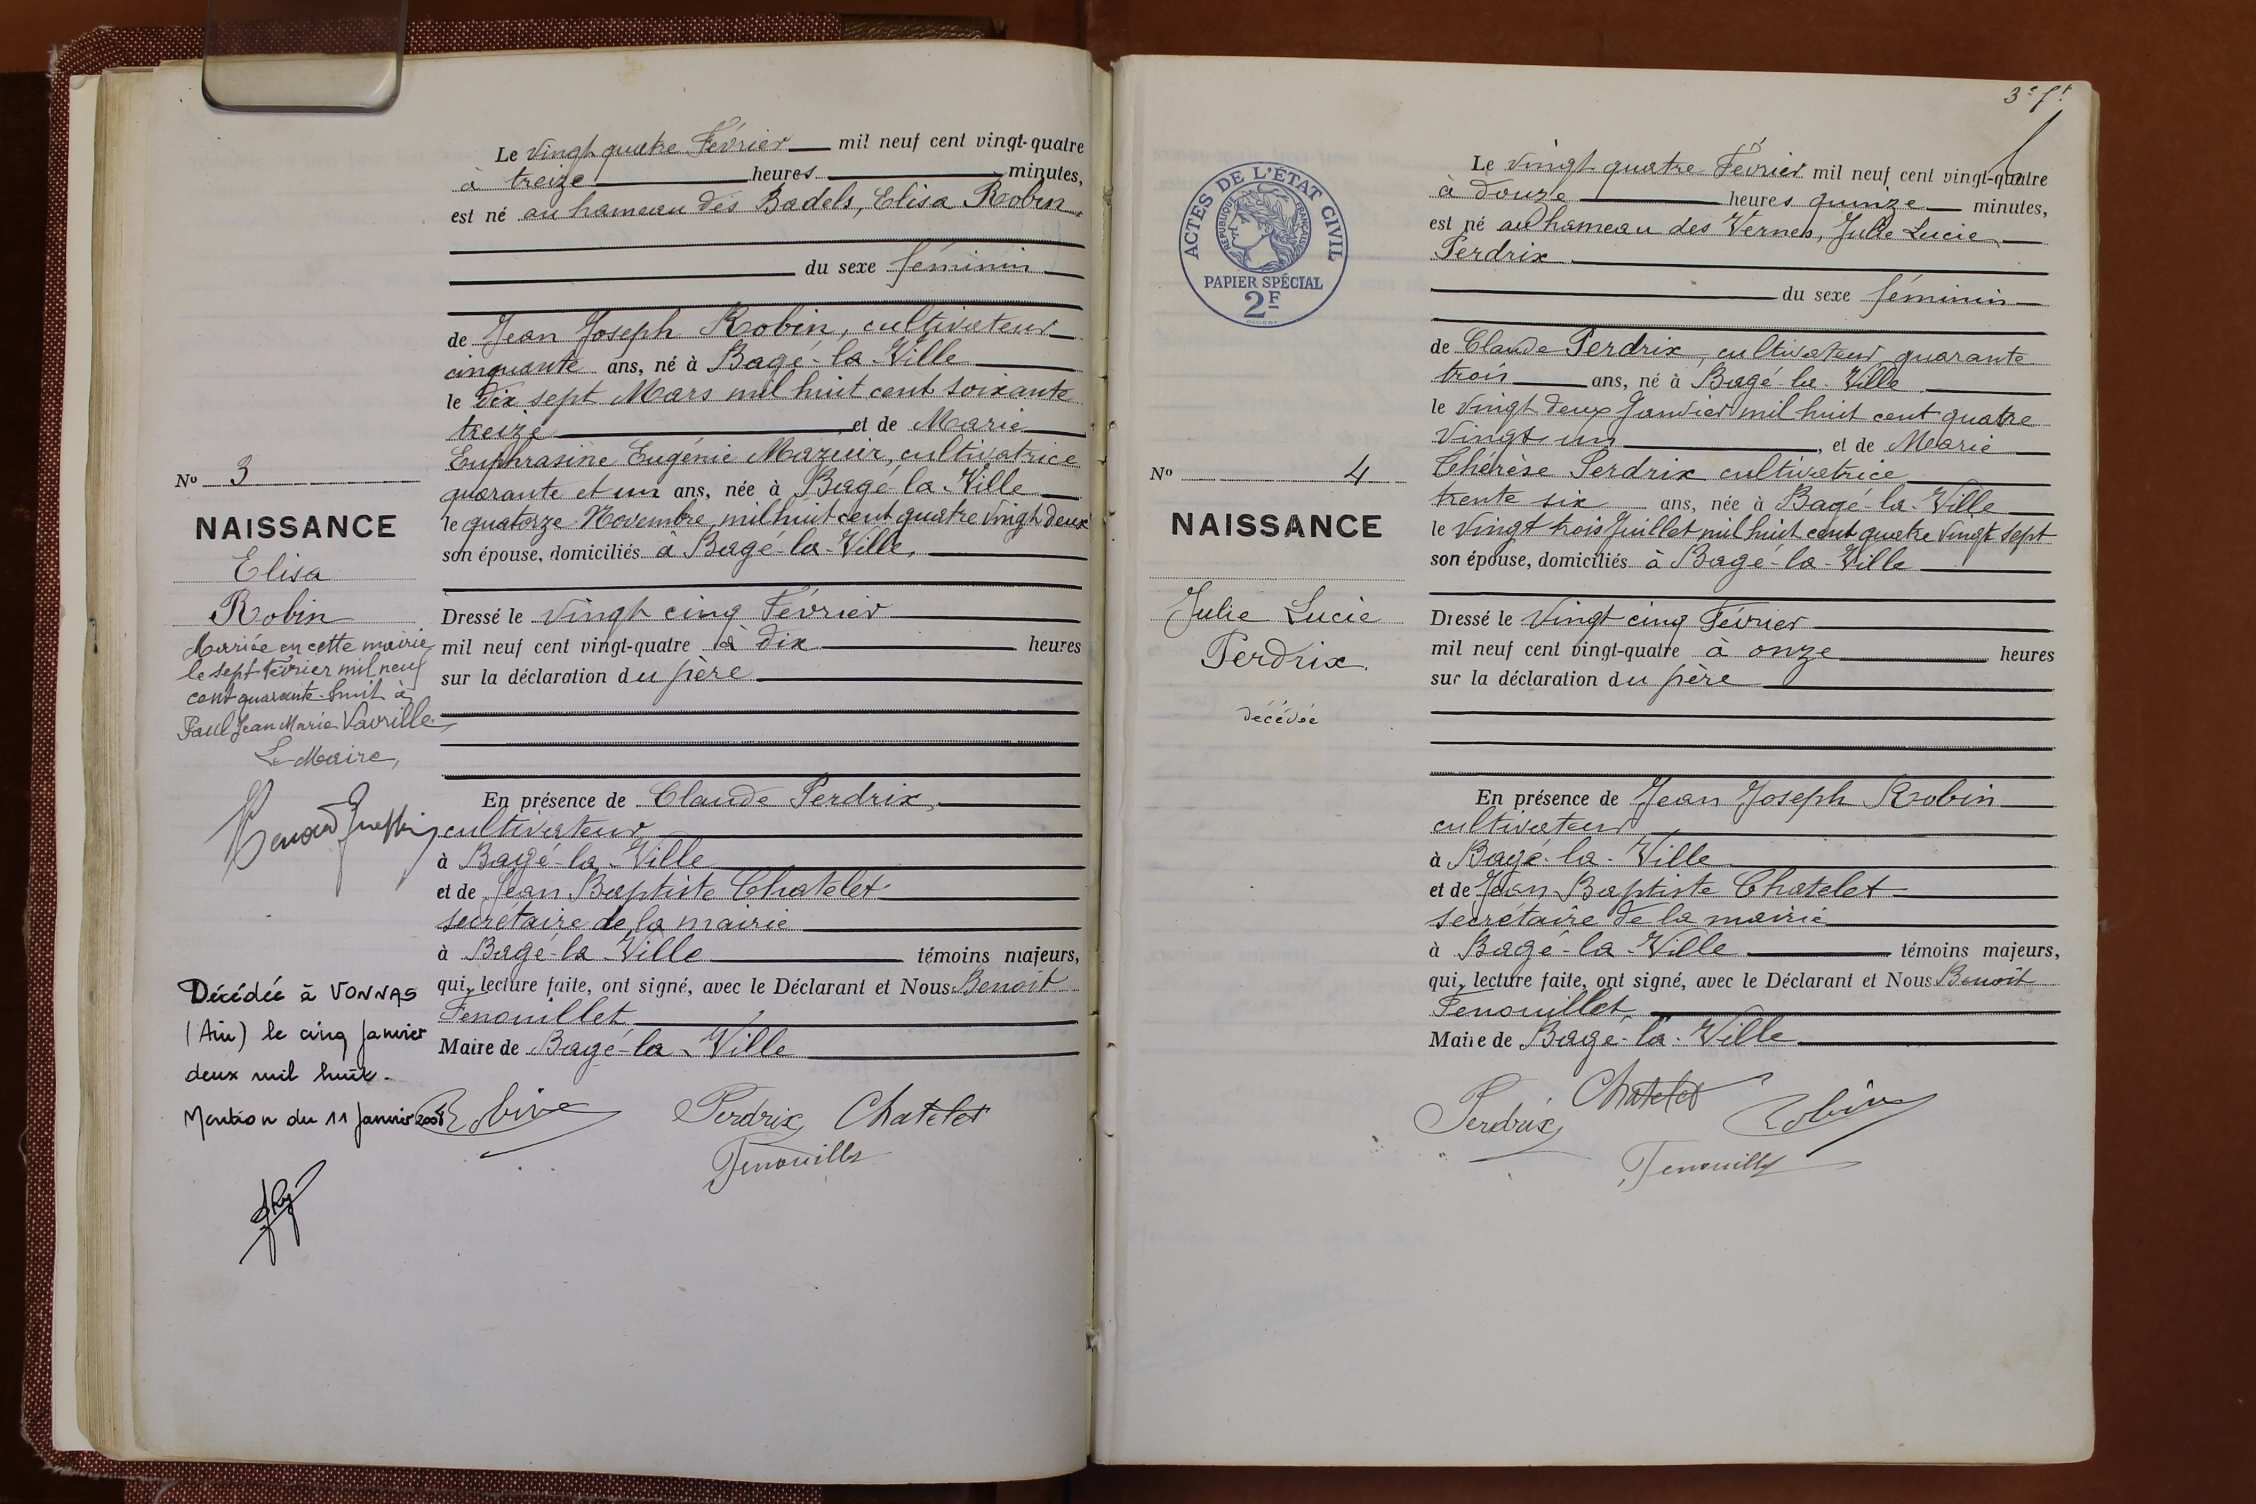 Le vingt quatre Février mil neuf cent vingt-quatre
à treize heures minutes,
est né au hameau des Badels, Elisa Robin
du sexe féminin
de Jean Joseph Robin, cultivateur
cinquante ans, né à Bagé-la-Ville
le dix sept Mars mil huit cent soixante
treize et de Marie
Euphrasine Eugénie Mazuir, cultivatrice
quarante et un ans, née à Bagé la-Ville
le quatorze Novembre mil huit cent quatre vingt deux
son épouse, domiciliés à Bagé-la-Ville,
Dressé le vingt cinq Février
mil neuf cent vingt-quatre à dix heures
sur la déclaration du père
En présence de Claude Perdrix,
cultivateur
à Bagé-la-Ville
et de Jean Baptiste Chatelet
secrétaire de la mairie
à Bagé-la Ville témoins majeurs,
qui, lecture faite, ont signé, avec le Déclarant et Nous Benoit
Fenouillet
Maire de Bagé-la-Ville
Robin Perdrix Chatelet
Fenouillet
No 3
NAISSANCE
Elisa
Robin
Mariée en cette mairie
le sept Février mil neuf
cent quarante-huit à
Paul Jean Marie Vavrille
Le Maire,
Décédée à VONNAS
(Ain) le cinq Janvier
deux mil huit.
Mention du 11 Janvier 2008
3e ft
ACTES DE L'ÉTAT CIVIL
RÉPUBLIQUE FRANÇAISE
PAPIER SPÉCIAL
2F
Le vingt quatre Février mil neuf cent vingt-quatre
à douze heures quinze minutes,
est né au hameau des Vernes, Julie Lucie
Perdrix
du sexe féminin
de Claude Perdrix, cultivateur quarante
trois ans, né à Bagé-la-Ville
le vingt deux Janvier mil huit cent quatre
vingt un, et de Marie
Thérèse Perdrix cultivatrice
trente six ans, née à Bagé-la-Ville
le vingt trois Juillet mil huit cent quatre vingt sept
son épouse, domiciliés à Bagé-la-Ville
Dressé le vingt cinq Février
mil neuf cent vingt-quatre à onze heures
sur la déclaration du père
En présence de Jean Joseph Robin
cultivateur
à Bagé-la-Ville
et de Jean Baptiste Chatelet
secrétaire de la mairie
à Bagé-la-Ville témoins majeurs,
qui, lecture faite, ont signé, avec le Déclarant et Nous Benoit
Fenouillet
Maire de Bagé-la-Ville
Perdrix Chatelet Robin
Fenouillet
No 4
NAISSANCE
Julie Lucie
Perdrix
décédée